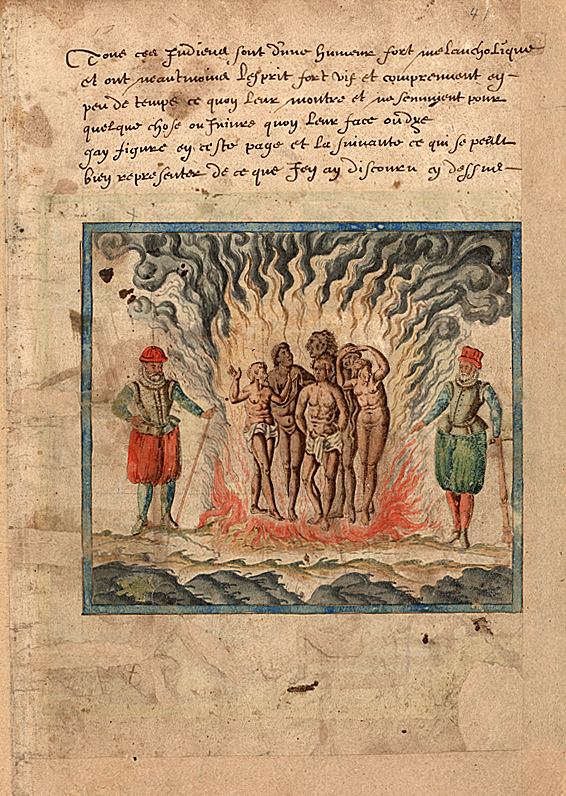 41
Tous ces Indiens sont d'une humeur fort melancholique
et ont neautmoins lesprit fort vif et comprennent en
peu de temps ce quon leur montre et ne sennuient pour
quelque chose ou Iniure quon leur face ou dye
Jay figure en ceste page et la suivante ce qui se peult
bien representer de ce que Jen ay discouru cy dessus